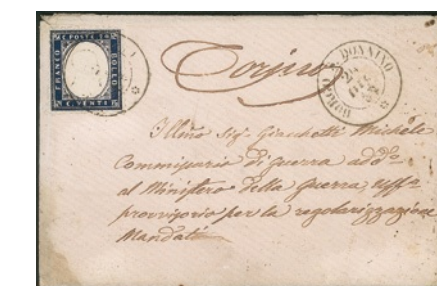 C. POSTE 20
FRANCO
BOLLO
C. VENTI
Torino
BORGO S. DONNINO
Illmo Sig. Giacchetti Michele
Commissario di guerra add.
al Ministero della guerra uff.
provvisorio per la regolarizzazione
Mandati